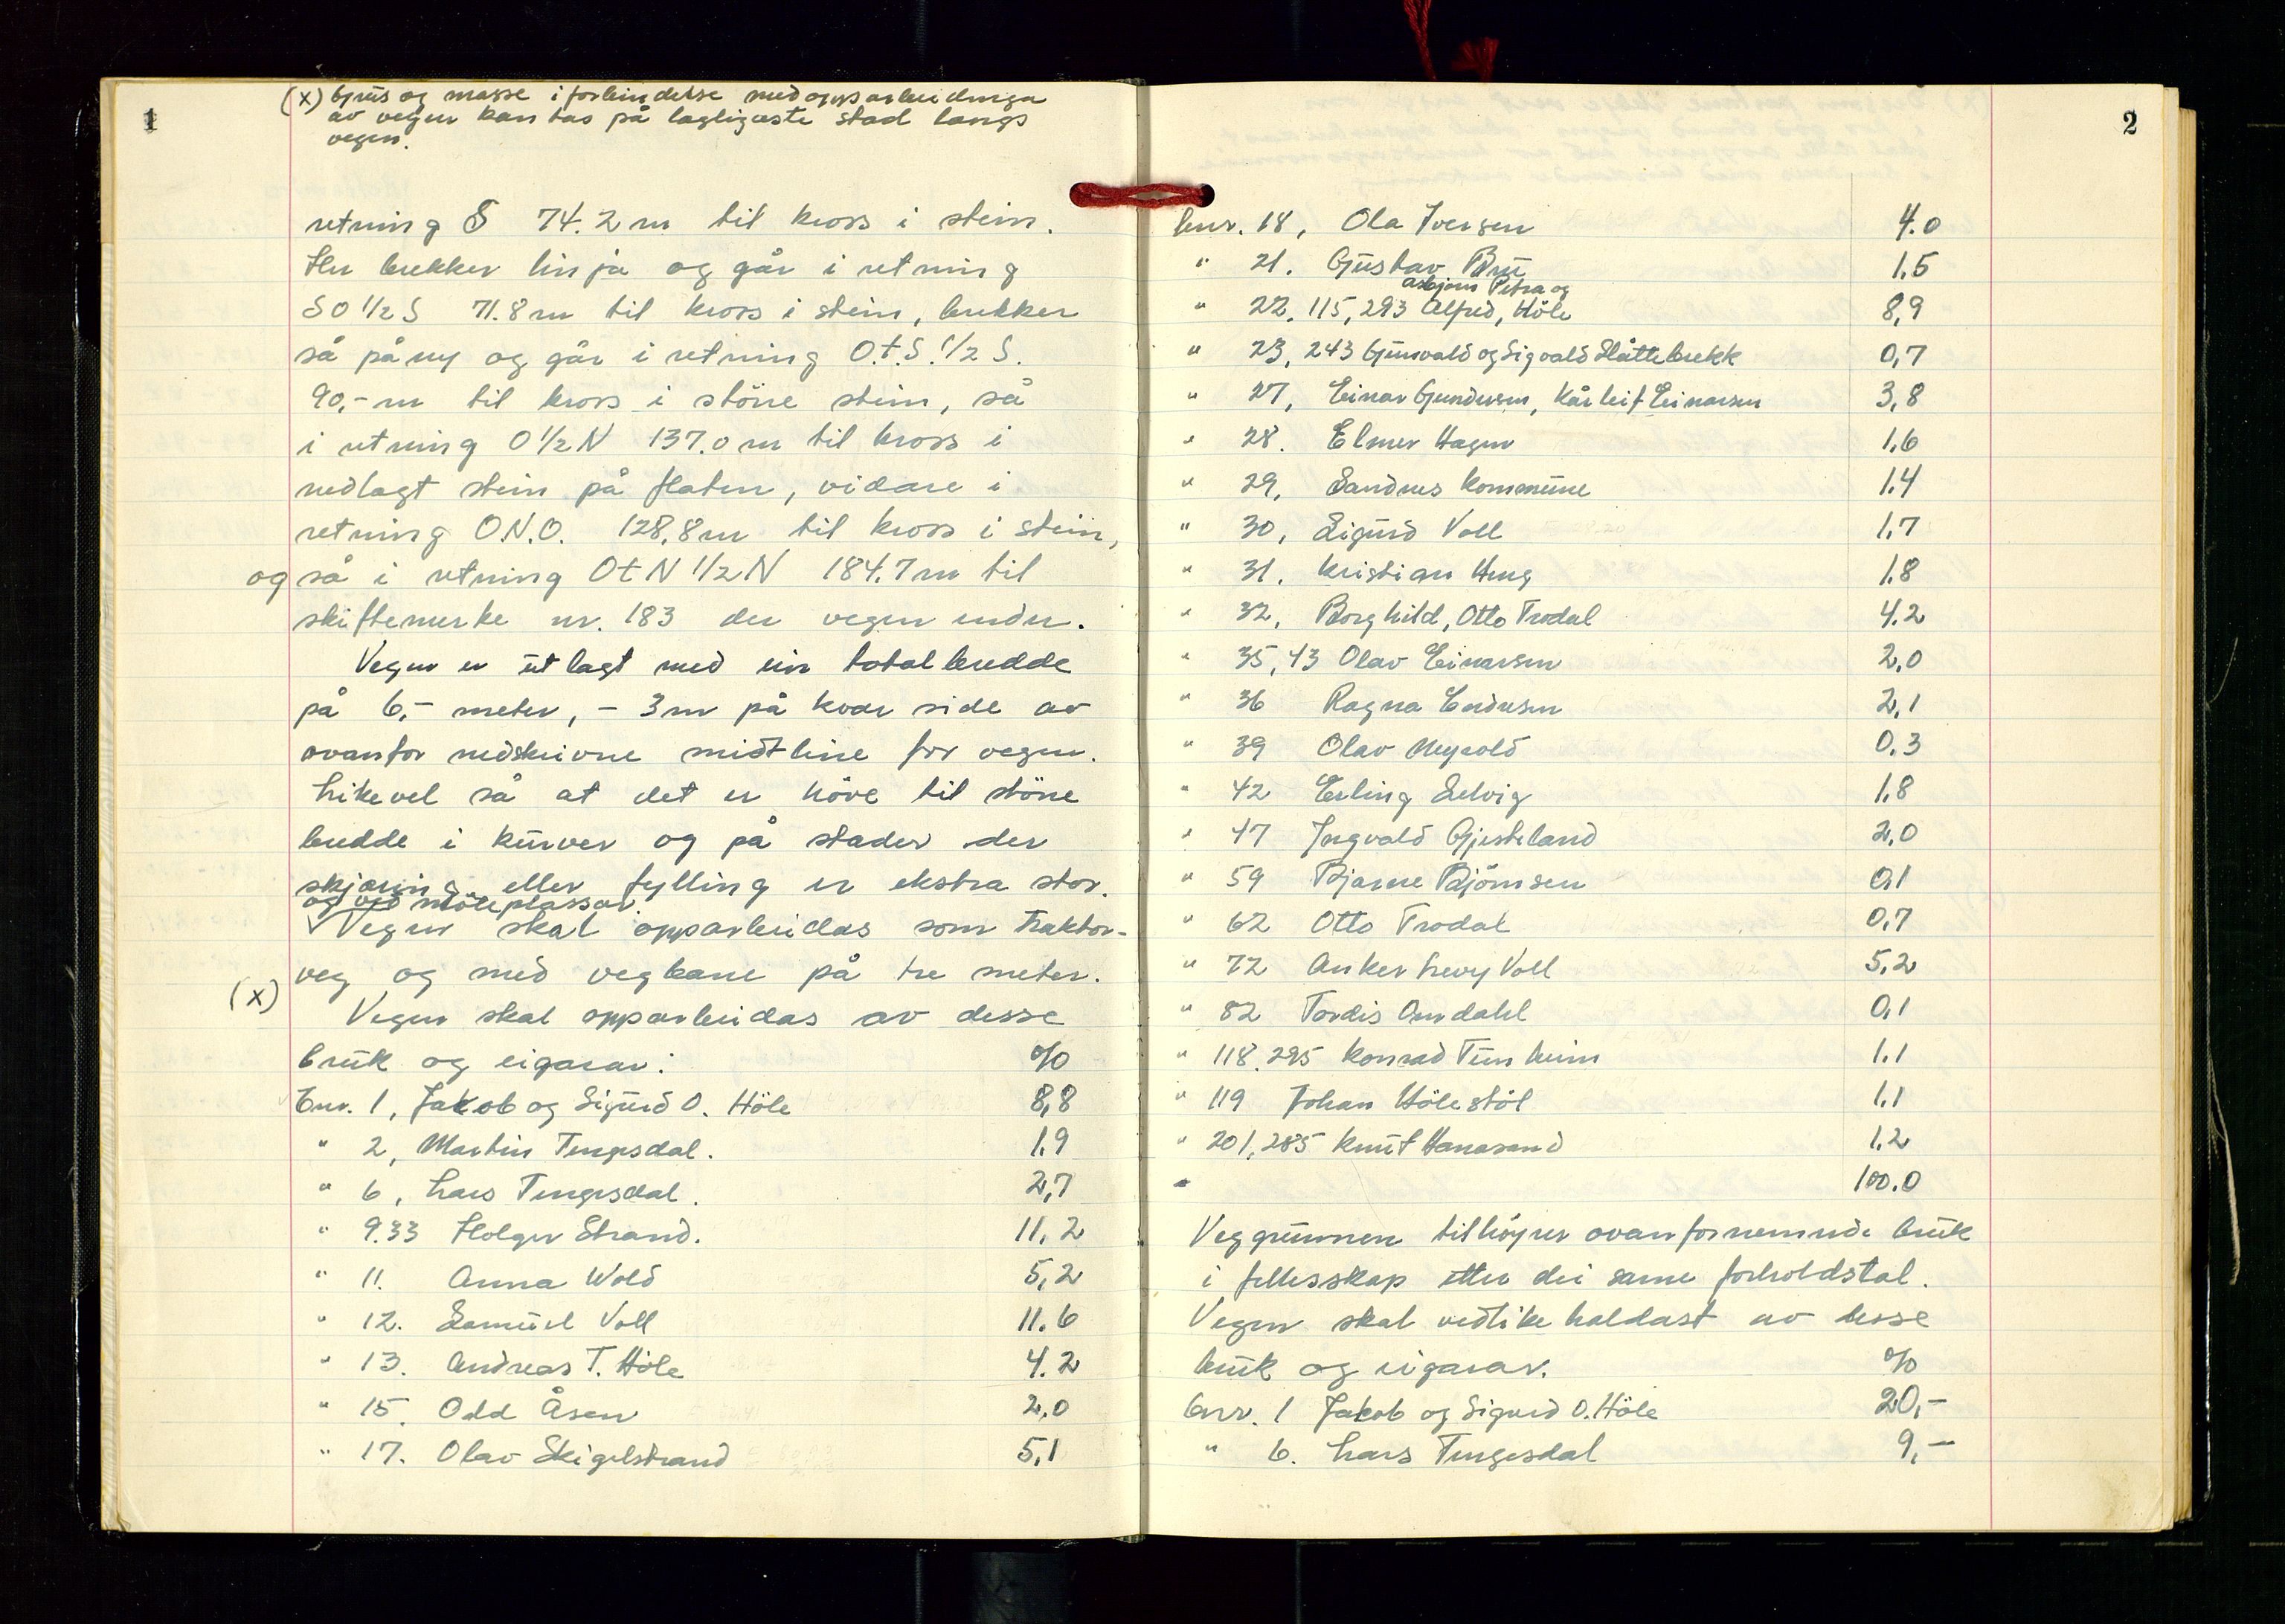 1
(x) Grus og masse i forbindelse med opparbeidinga
av vegen kan tas på lagligaste stad langs
vegen.
retning S 74.2 m til kross i stein.
Her brekker linja og går i retning
SO 1/2 S 71.8 m til kross i stein, brekker
så på ny og går i retning O.t.S. 1/2 S.
90,- m til kross i störe stein, så
i retning O 1/2 N 137.0 m til kross i
nedlagt stein på flaten, vidare i
retning O.N.O. 128,8 m til kross i stein,
og så i retning O t N 1/2 N 184.7 m til
skiftemerke nr. 183 der vegen ender.
Vegen er utlagt med ein total bredde
på 6,- meter, - 3 m på kvar side av
ovanfor nedskrivne midtline for vegen.
Likevel så at det er höve til störe
bredde i kurver og på stader der
skjæring eller fylling er ekstra stor.
og ved möteplassar.
Vegen skal opparbeidas som traktor-
veg og med vegbane på tre meter.
(x)
Vegen skal opparbeidas av desse
bruk og eigarar: %
bnr. 1, Jakob og Sigurd O. Höle 8,8
" 2, Martin Tengesdal. 1.9
" 6, Lars Tengesdal. 2,7
" 9.33 Holger Strand. 11,2
" 11. Anna Wold 5,2
" 12. Samuel Voll 11.6
" 13. Andreas T. Höle 4.2
" 15. Odd Åsen 2,0
" 17. Olav Skigelstrand 5,1
2
bnr. 18, Ola Iversen 4.0
" 21. Gustav Bru 1.5
Asbjørn Petra og
" 22, 115, 293 Alfred, Höle 8,9
" 23, 243 Gunvald og Sigvald Slåttebrekk 0,7
" 27, Einar Gundersen, Kårleif Einarsen 3,8
" 28. Elmer Hagen 1,6
" 29, Sandnes kommune 1.4
" 30, Sigurd Voll 1.7
" 31, Kristian Haug 1.8
" 32, Borghild, Otto Trodal 4.2
" 35, 43 Olav Einarsen 2,0
" 36 Ragna Endresen 2,1
" 39 Olav 0.3
" 42 Erling Selvig 1,8
" 47 Ingvald Gjesteland 2,0
" 59 Bjarne Björnsen 0,1
" 62 Otto Trodal 0,7
" 72 Anker Levy Voll 5,2
" 82 Tordis Omdahl 0,1
" 118, 295 Konrad Tunheim 1.1
" 119 Johan Hölestöl 1.1
" 201, 285 Knut Hanasand 1.2
" 100.0
Veggrunnen tilhøyrer ovanfornemnde bruk
i fellesskap etter dei same forholdstal.
Vegen skal vedlikehaldast av desse
bruk og eigarar. %
bnr. 1 Jakob og Sigurd O. Höle 20,-
" 6. Lars Tengesdal 9,-